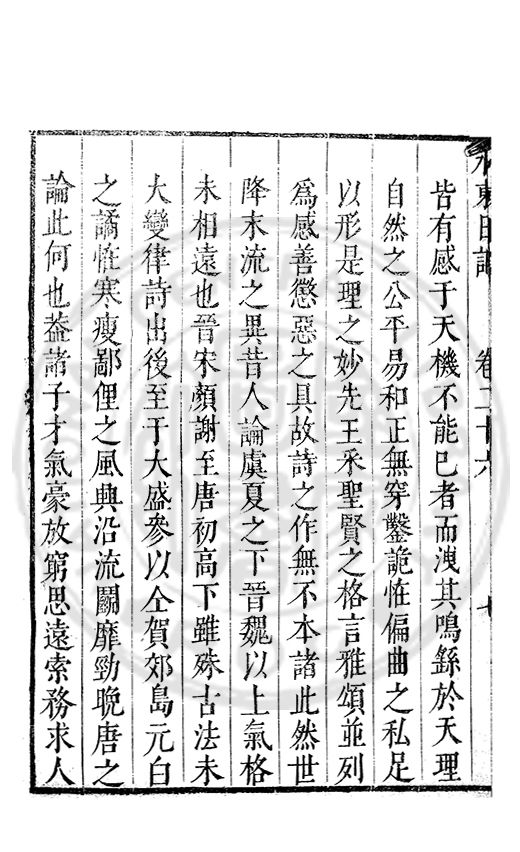 水東日記 卷二十六 七
皆有感于天機不能已者而洩其鳴繇於天理
自然之公平易和正無穿鑿詭恠偏曲之私足
以形是理之妙先王采聖賢之格言雅頌並列
爲感善懲惡之具故詩之作無不本諸此然世
降末流之異昔人論虞夏之下晉魏以上氣格
未相遠也晉宋顏謝至唐初高下雖殊古法未
大變律詩出後至于大盛參以仝賀郊島元白
之譎恠寒瘦鄙俚之風興沿流鬭靡勁晚唐之
論此何也葢諸子才氣豪放窮思遠索務求人